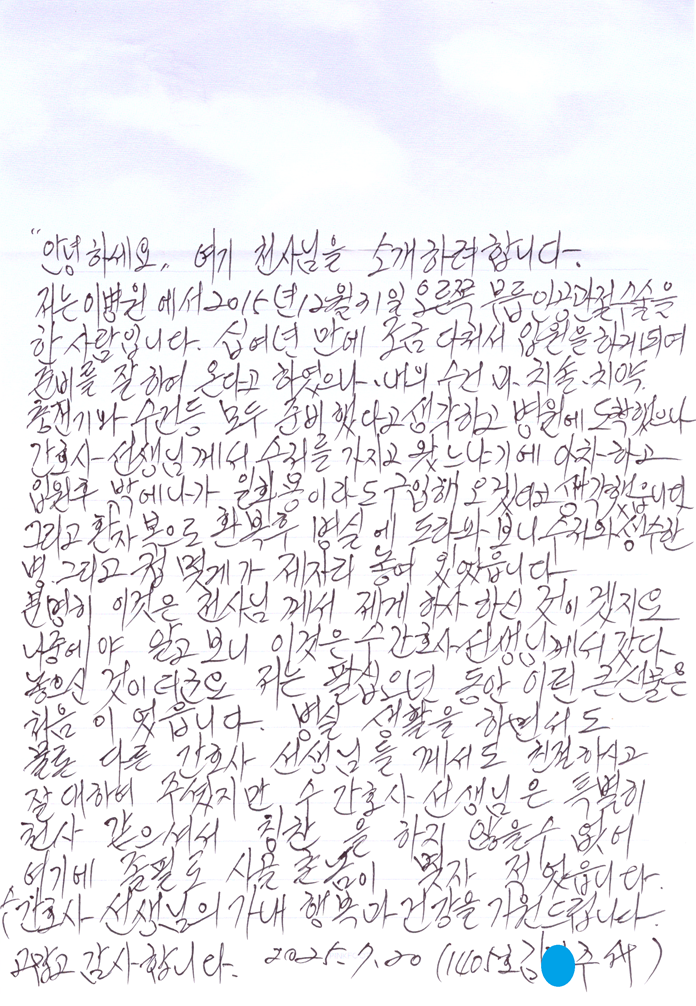 "안녕하세요" 여기 천사님을 소개하려 합니다.
저는 이병원에서 2015년 12월 31일 오른쪽 무릎 인공관절 수술을
한 사람입니다. 십여년 만에 조금 다쳐서 입원을 하게 되여
준비를 잘 하여 온다고 하였으나, 내의, 수건 과, 치솔, 치약,
충전기와 수건등 모두 준비했다고 생각하고 병원에 도착했으나
간호사 선생님께서 수저를 가지고 왔느냐기에 아차 하고
입원후 밖에 나가 일회용이라도 구입해 오겠다고 생각했읍니다
그리고 환자복으로 환복후 병실에 도라와 보니 수저와 생수 한
병 그리고 컵 몇게가 제자리 놓여 있었읍니다
분명히 이것은 천사님께서 제게 하사 하신 것이겠지요
나중에야 알고 보니 이것은 수간호사 선생님께서 갔다
놓으신 것이더군요 저는 팔십오년 동안 이런 큰선물은
처음 이였읍니다. 병실 생활을 하면서도
물론 다른 간호사 선생님들께서도 친절하시고
잘 대하여 주셨지만 수간호사 선생님은 특별히
천사 같으셔서 칭찬을 하지 않을수 없어
여기에 졸필로 시골 촌놈이 몇자 적었읍니다.
수간호사 선생님의 가내 행복과 건강을 기원드립니다.
고맙고 감사합니다. 2025.7.20 (1405호 김 주 )